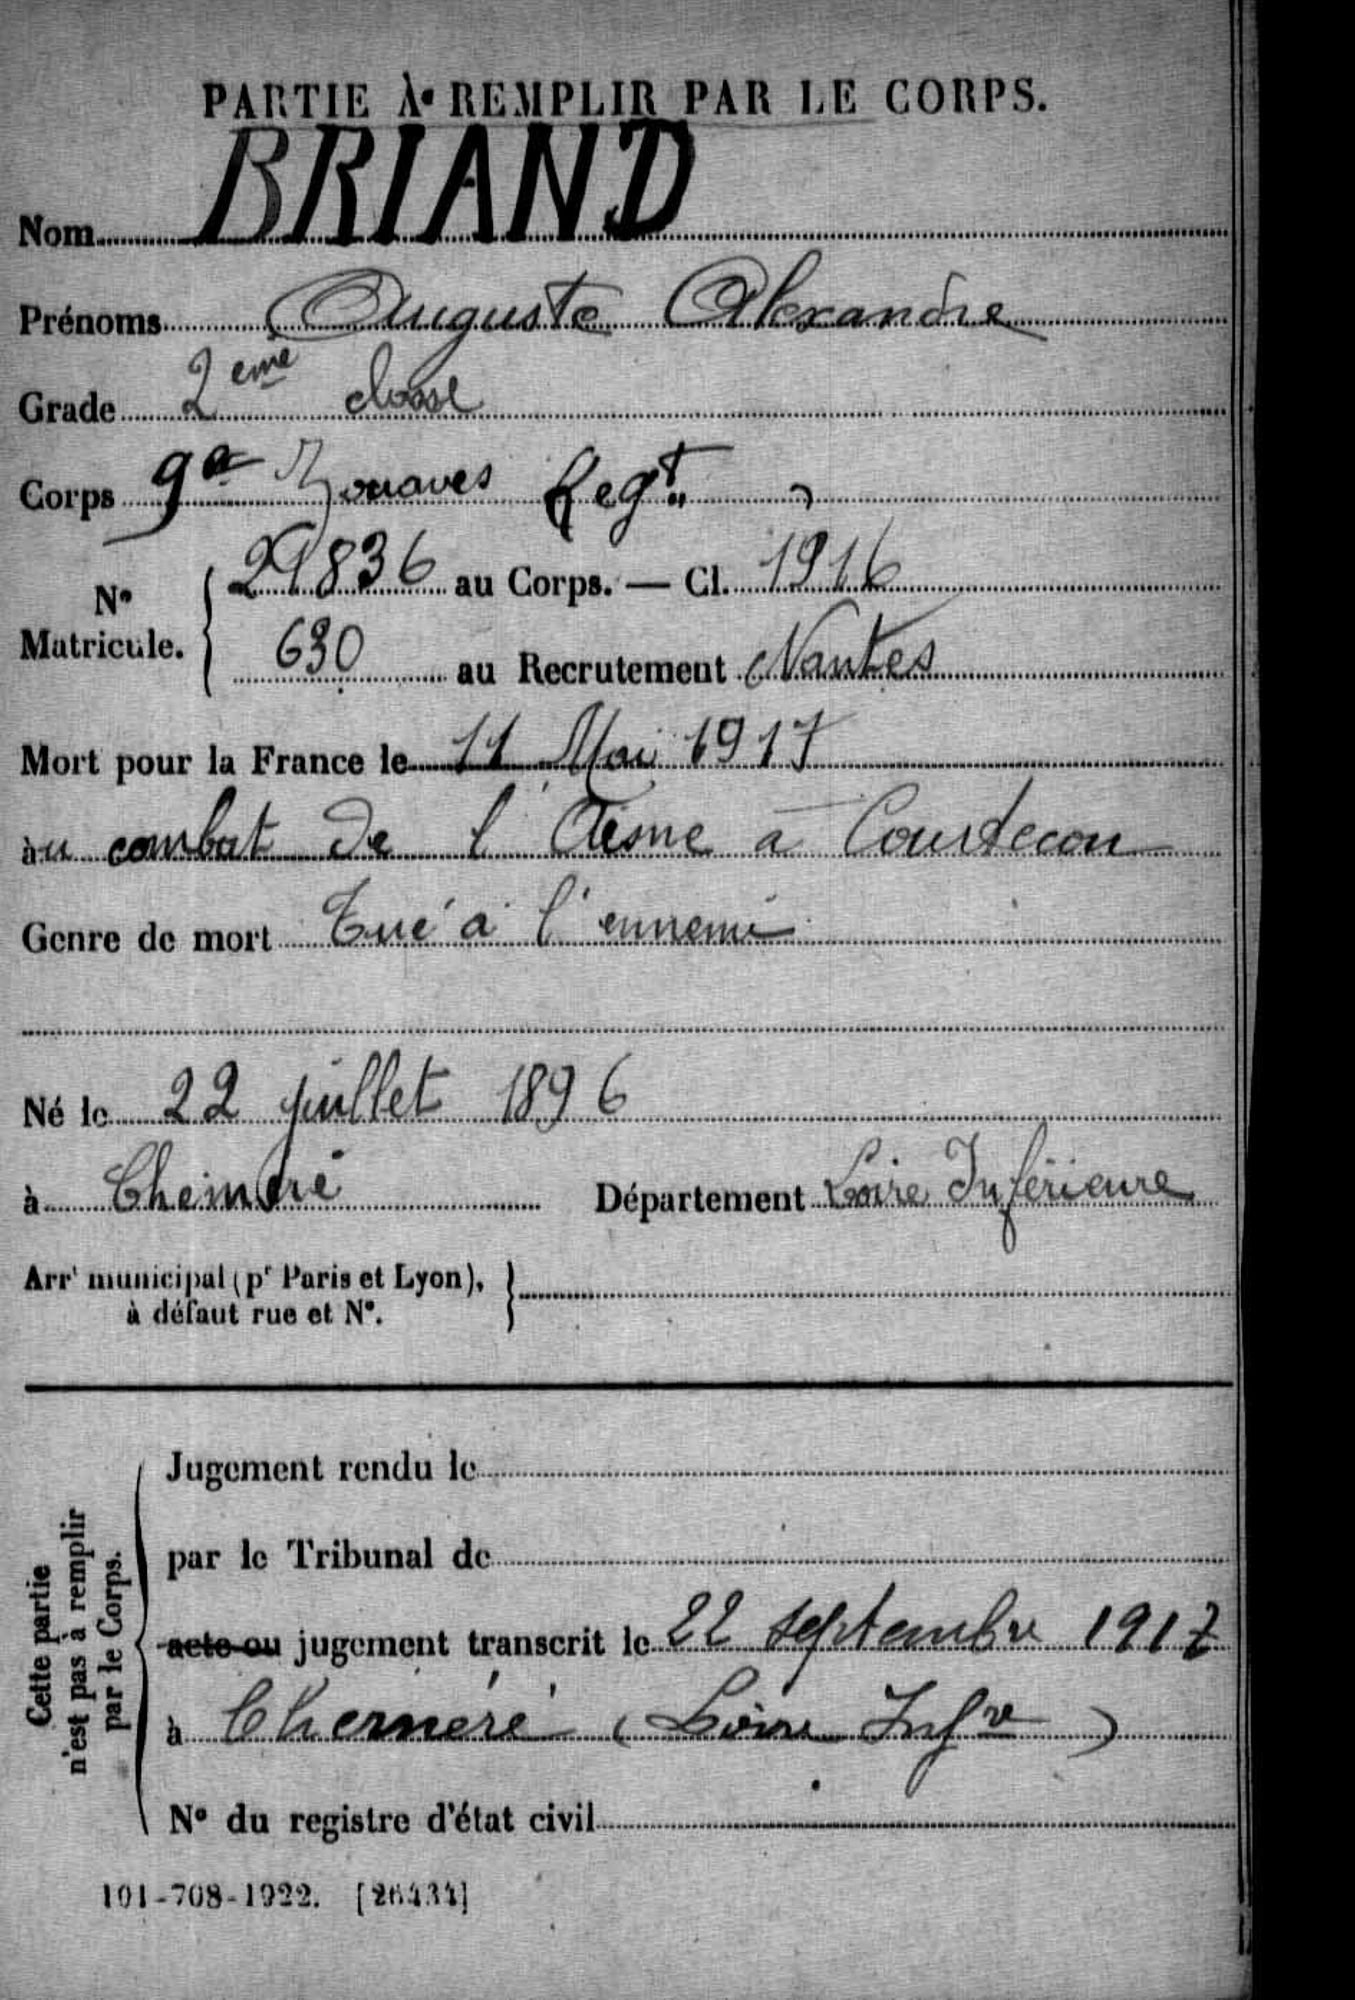 PARTIE À REMPLIR PAR LE CORPS.
Nom BRIAND
Prénoms Auguste Alexandre
Grade 2eme classe
Corps 9e Zouaves Regt
No Matricule. 21836 au Corps. — Cl. 1916
630 au Recrutement Nantes
Mort pour la France le 11 Mai 1917
au combat de l'Aisne à Courtecon
Genre de mort Tué à l'ennemi
Né le 22 juillet 1896
à Cheméré Département Loire Inférieure
Arrt municipal (pr Paris et Lyon),
à défaut rue et No.
Cette partie
n'est pas à remplir
par le Corps.
Jugement rendu le
par le Tribunal de
acte ou jugement transcrit le 22 septembre 1917
à Cheméré (Loire Infre)
No du registre d'état civil
101-708-1922. [26434]